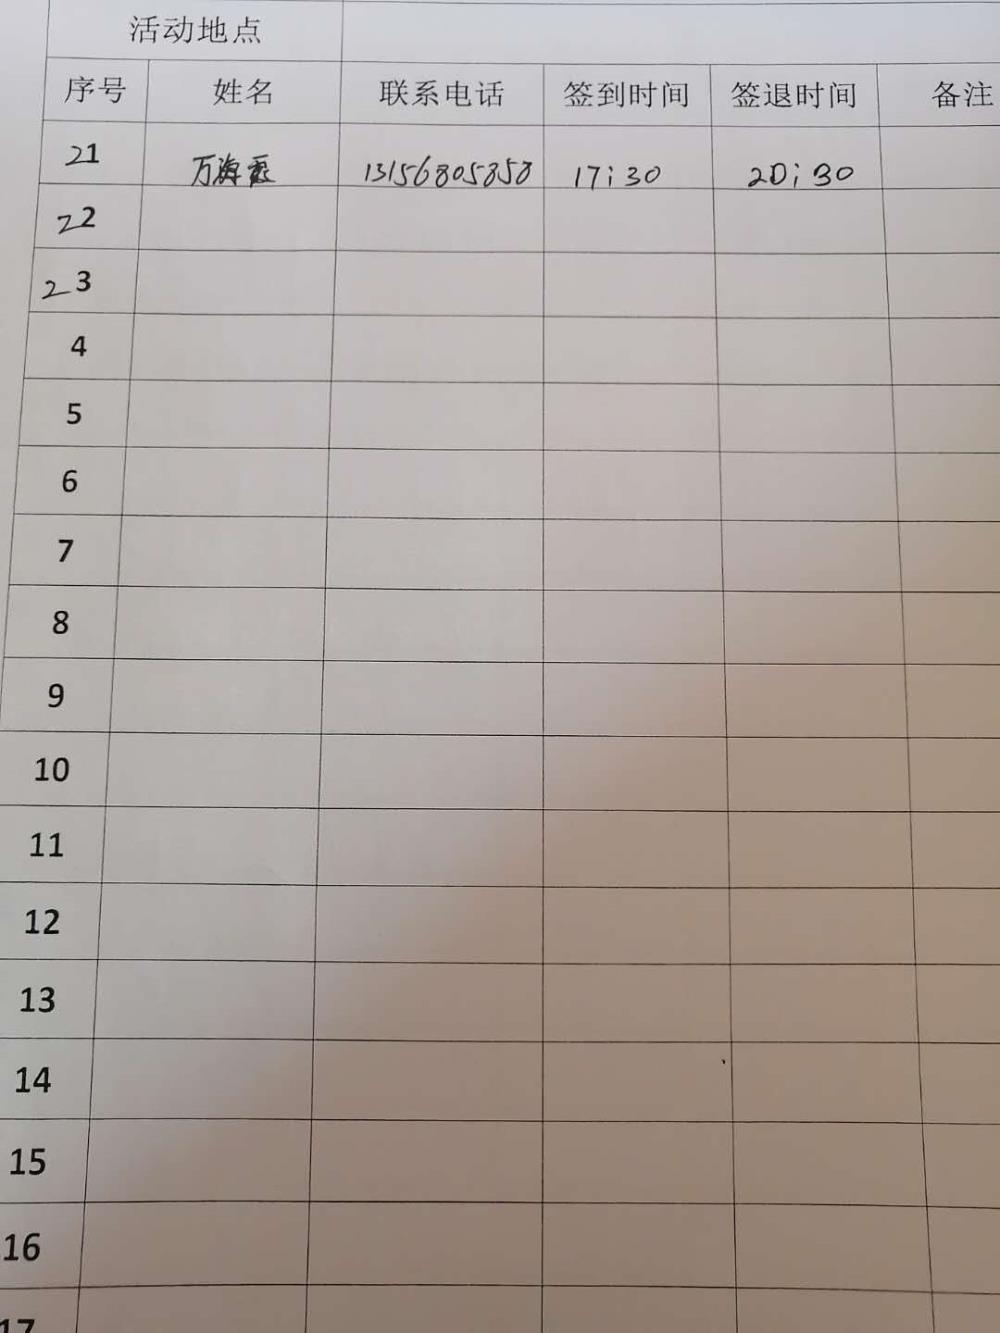 活动地点
序号 姓名 联系电话 签到时间 签退时间 备注
21 万海 13156805858 17:30 20:30
22
23
4
5
6
7
8
9
10
11
12
13
14
15
16
17